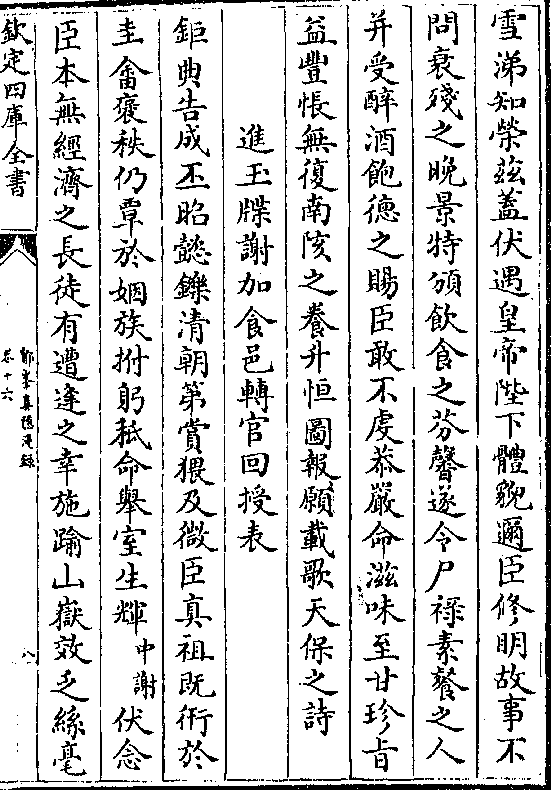 雪涕知榮茲蓋伏遇皇帝陛下體貌邇臣修明故事不
問衰殘之晚景特頒飲食之芬馨遂令尸祿素餐之人
并受醉酒飽德之賜臣敢不虔恭嚴命滋味至甘珍旨
益豐悵無復南陔之養升恒圖報願載歌天保之詩
進玉牒謝加食邑轉官回授表
鉅典告成丕昭懿鑠清朝第賞猥及微臣真祖既衍於
圭畬褒秩仍覃於姻族拊躬秪命舉室生輝中謝伏念
臣本無經濟之長徒有遭逢之幸施踰山嶽效乏絲毫
欽定四庫全書
鄮峯真隱漫錄
卷十六
八